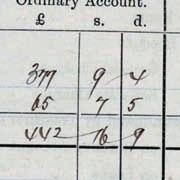 Ordinary Account.
£ s. d.
377 9 4
65 7 5
442 16 9